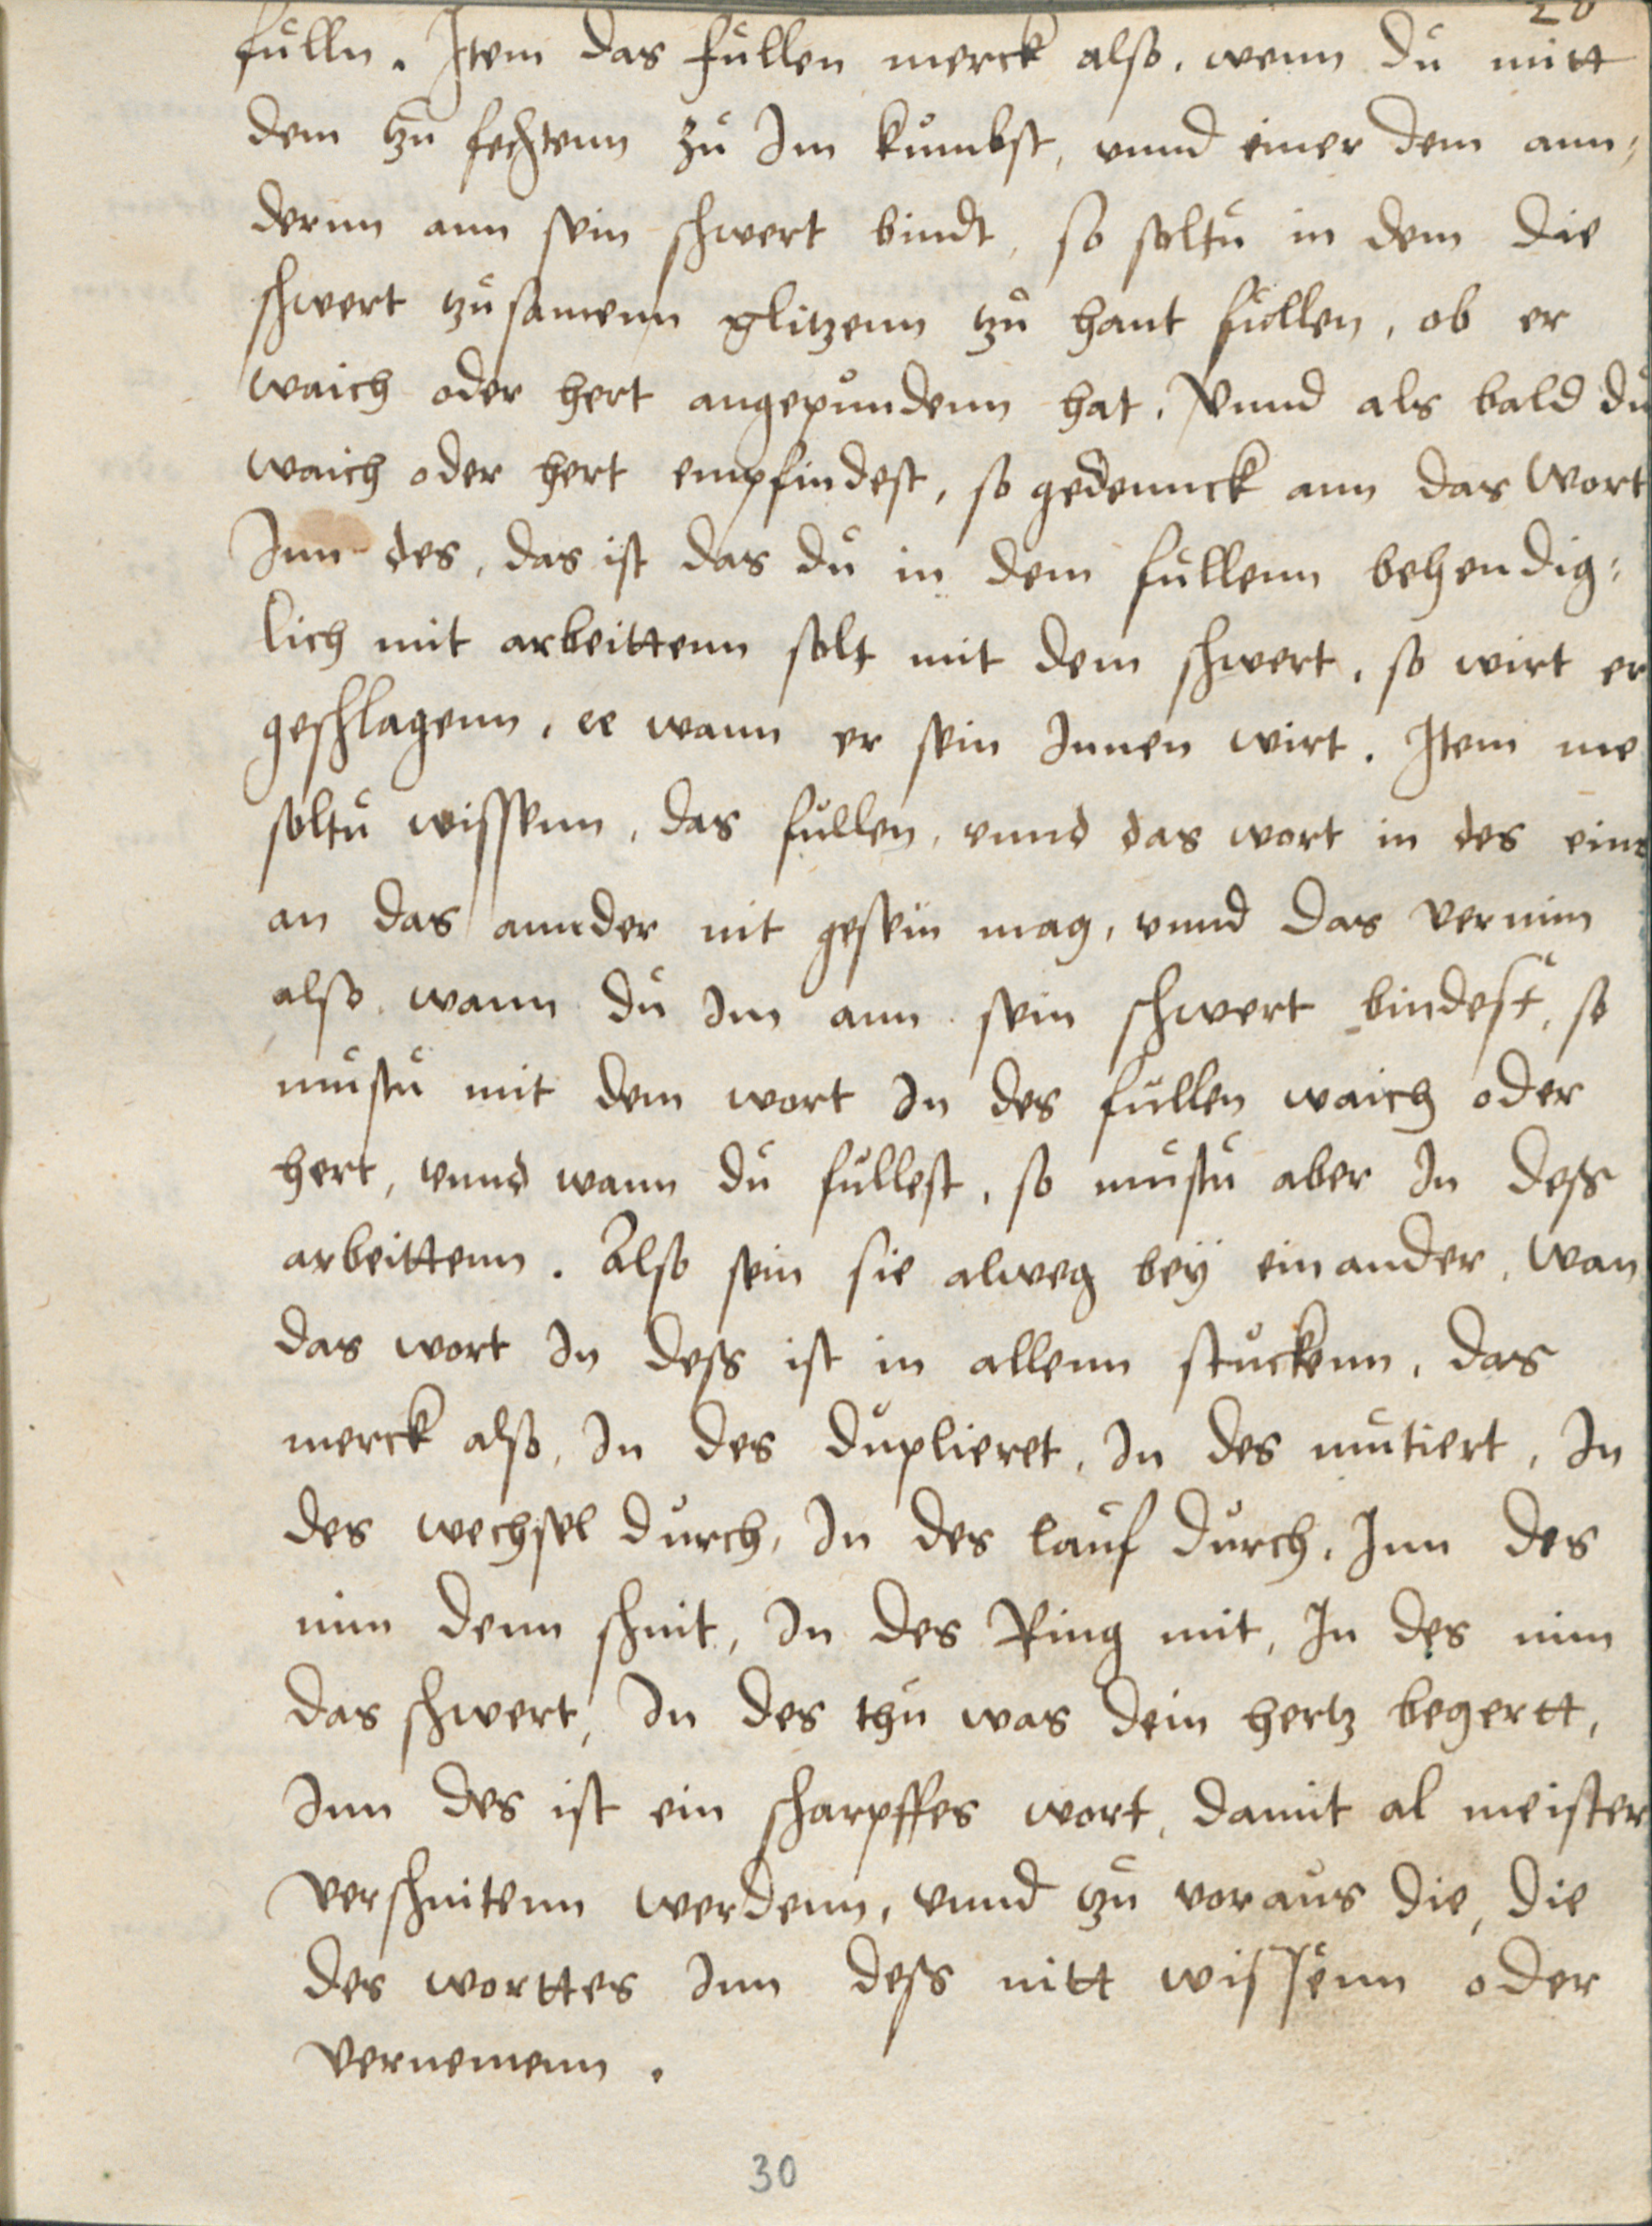 fulln. Item das fullen merck also, wenn du mitt
dem zu fechtenn zu Im kumbst, vnnd einer dem ann=
dernn ann sein schwert bindt, so soltu in dem die
schwert zusamenn glitzenn zu hant fullen, ob er
waich oder hert angepundenn hat, Vnnd als bald du
waich oder hert empfindest, so gedennck ann das Wort
Inn des, das ist das du in dem fullenn behendig=
lich mit arbeittenn solt mit dem schwert, so wirt er
geschlagenn, ee wann er sein Innen wirt. Item me
soltu wissenn, das fullen, vnnd das wort in des eins
an das annder nit gesein mag, vnnd das vernim
also, wann du Im ann sein schwert bindest, so
mustu mit dem wort In des fullen waich oder
hert, vnnd wann du fullest, so mustu aber In dess
arbeittenn. Also sein sie alweg beÿ einander, wan
das wort In dess ist in allenn stuckenn, das
merck also, In des duplieret, In des mutiert, In
des wechsel durch, In des lauf durch, Inn des
nim denn schnit, In des Ring mit, In des nim
das schwert, In des thu was dein hertz begertt,
Inn des ist ein scharpffes wort, damit al meister
verschnitenn werdenn, vnnd zu voraus die, die
des worttes Inn dess nitt wissenn oder
vernemenn.
30